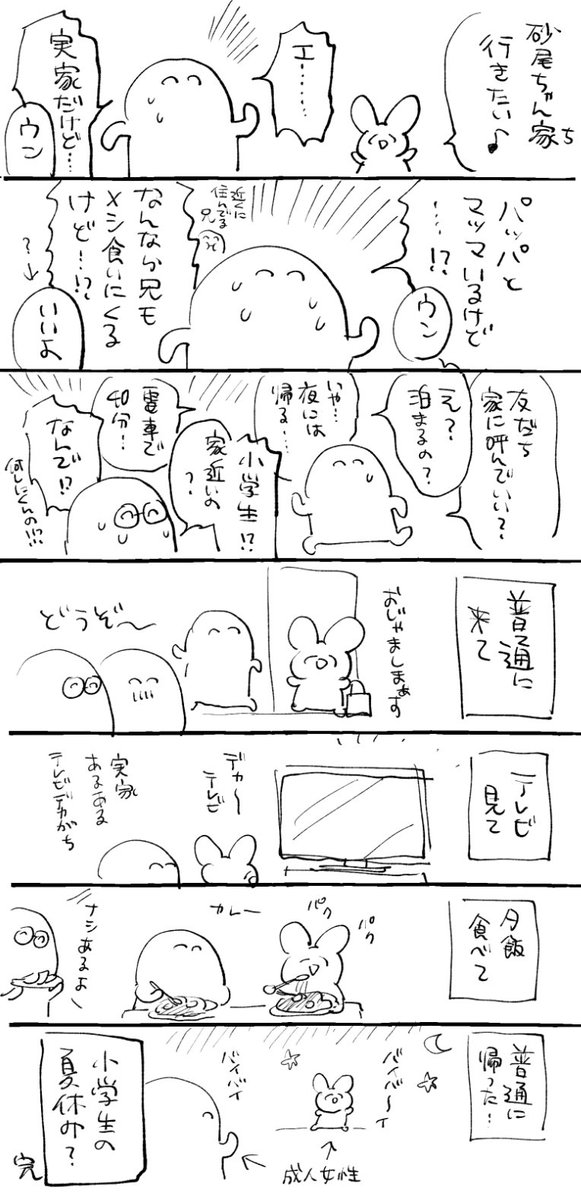 砂尾ちゃん家ち
行きたい♪
エ……
実家だけど…
ウン
パッパと
マッマいるけど
…!?
ウン
近くに
住んでる
兄
なんなら兄も
メシ食いにくる
けど…!?
?→
いいよ
友だち
家に呼んでいい?
え?
泊まるの?
いや…
夜には
帰る…
小学生!?
家近いの
?
電車で
40分!
なんで!?
何しにくんの!!?
普通に
来て
おじゃましまぁす
どうぞ〜
テレビ
見て
デカ〜
テレビ
実家
あるある
テレビデカがち
夕飯
食べて
パク
パク
カレー
ナシあるよ
普通に
帰った!
バイバ〜イ
バイバイ
↑
成人女性
小学生の
夏休み?
完